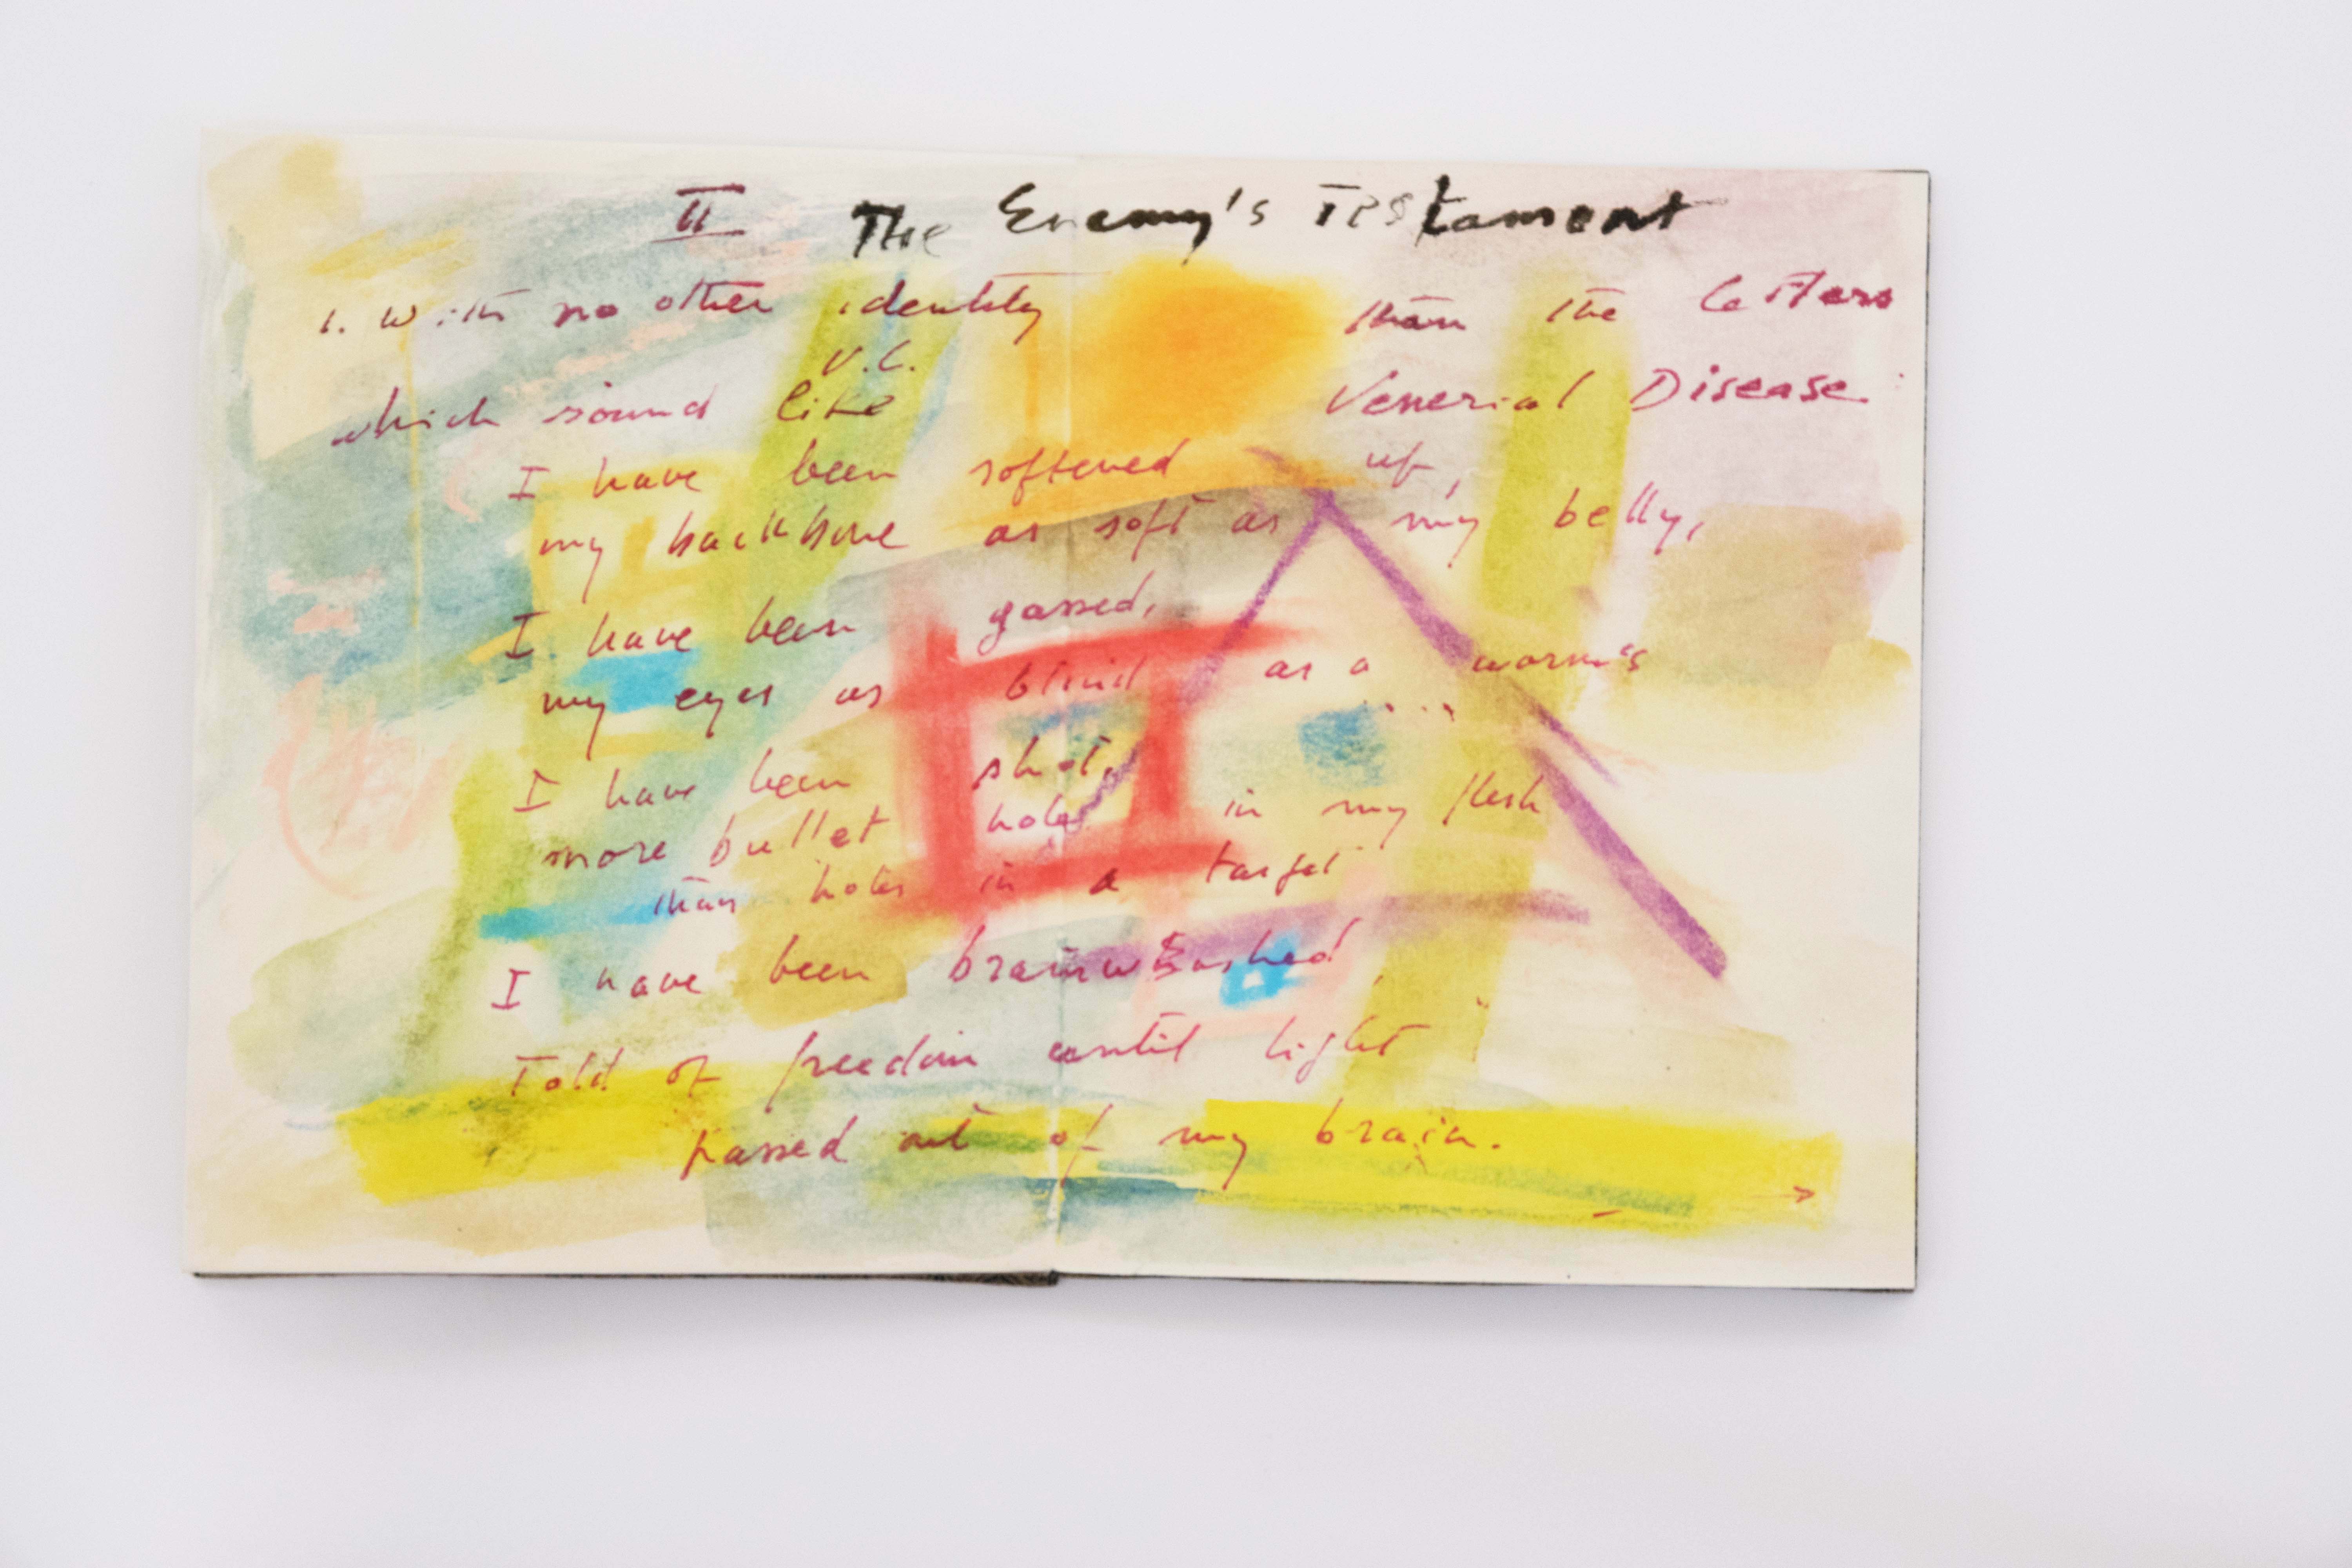 II The Enemy's Testament
1. With no other identity than the letters
V.C.
which sound like Venerial Disease
I have been softened up,
my backbone as soft as my belly,
I have been gassed,
my eyes as blind as a worm's
....
I have been shot,
more bullet holes in my flesh
than holes in a target
I have been brainwashed,
Told of freedom until light
passed out of my brain.
→